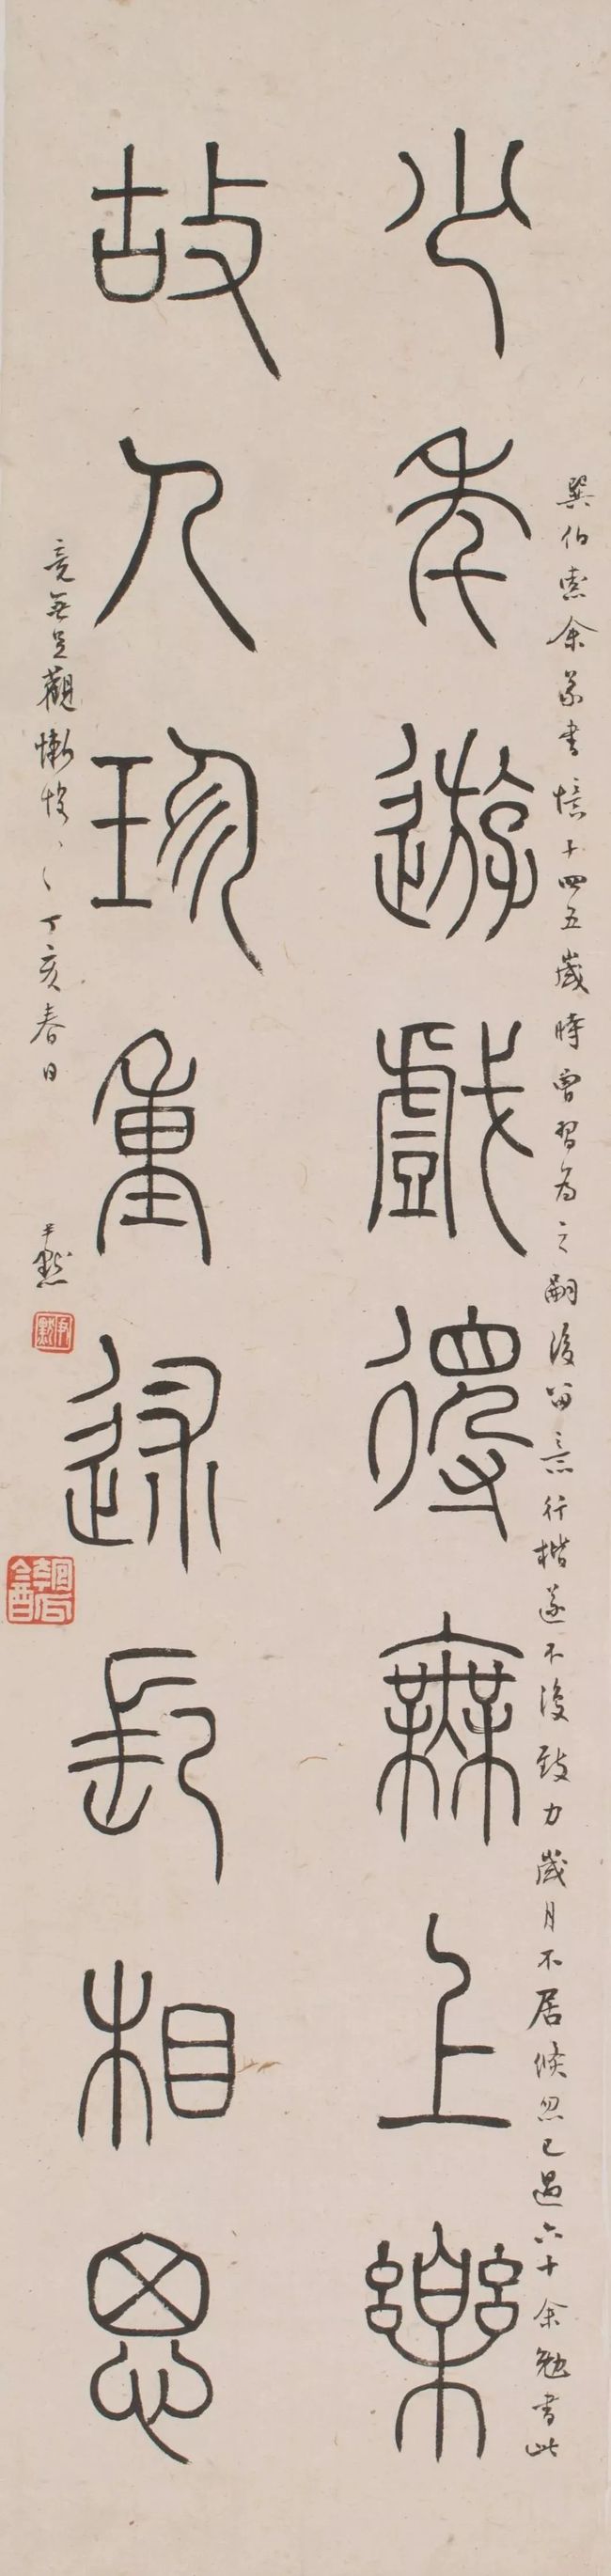 巽伯索余篆書憶十四五歲時曾習為之嗣後留意行楷遂不復致力歲月不居倏忽已過六十余勉書此
少年遊戲得無上樂
故人珍重長相思
竟無足觀慚愧〻〻丁亥春日
尹默
尹默